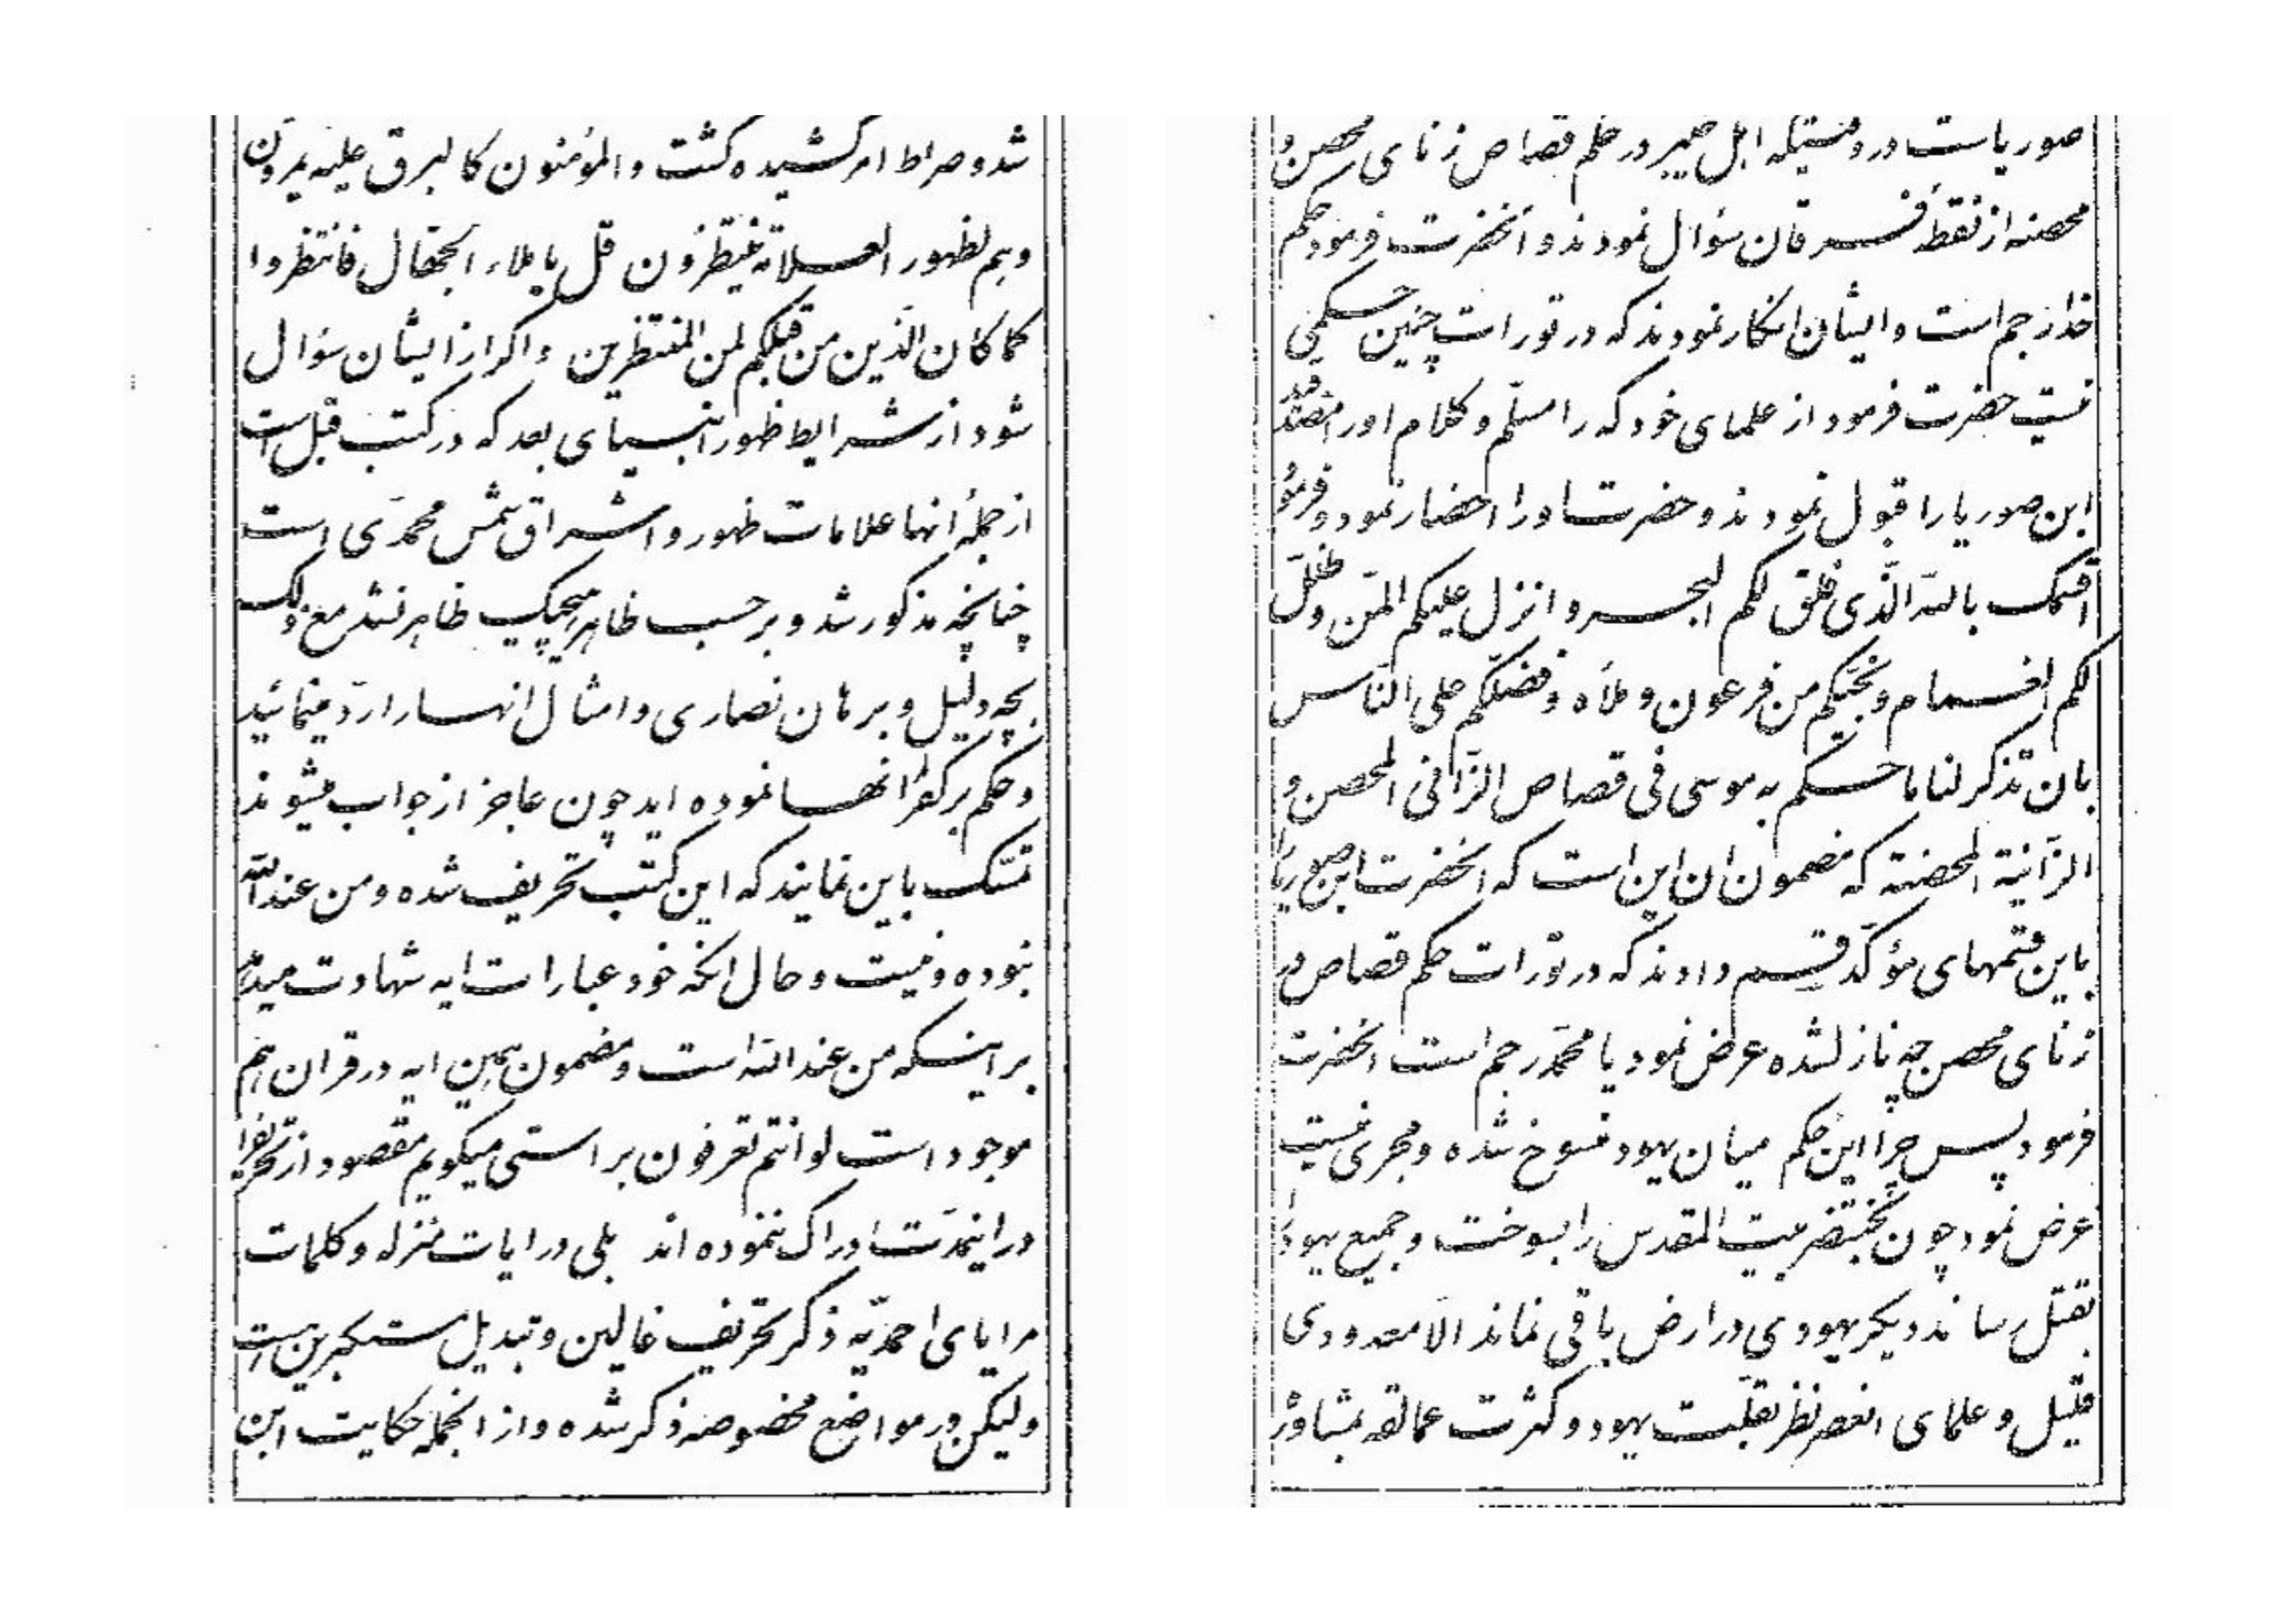 شد و صراط امر کشیده گشت و المؤمنون کالبرق علیه یمرون
و هم لظهور العلامة ینتظرون قل یا ملاء الجهّال فانتظروا
کما کان الّذین من قبلکم لمن المنتظرین و اگر از ایشان سؤال
شود از شرایط ظهور انبیای بعد که در کتب قبل است
از جمله انها علامات ظهور و اشراق شمس محمّدی است
چنانچه مذکور شد و بر حسب ظاهر هیچیک ظاهر نشد مع ذلک
بچه دلیل و برهان نصاری و امثال انها را ردّ مینمائید
و حکم بر کفر انها نموده اید چون عاجز از جواب میشوند
تمسّک باین نمایند که این کتب تحریف شده و من عند اللّه
نبوده و نیست و حال انکه خود عبارات ایه شهادت میدهد
بر اینکه من عند اللّه است و مضمون همین ایه در قران هم
موجود است لو انتم تعرفون براستی میگویم مقصود از تحریف را
در اینمدّت ادراک ننموده اند بلی در ایات منزله و کلمات
مرایای احمدیّه ذکر تحریف غالین و تبدیل مستکبرین است
ولیکن در مواضع مخصوصه ذکر شده و از انجمله حکایت ابن
صوریاست در وقتیکه اهل خیبر در حکم قصاص زنای محصن و
محصنه از نقطهٔ فرقان سؤال نمودند و انحضرت فرمود حکم
خدا رجم است و ایشان انکار نمودند که در تورات چنین حکمی
نیست حضرت فرمود از علمای خود که را مسلّم و کلام او را مصدّقید
ابن صوریا را قبول نمودند و حضرت او را احضار نمود و فرمود
اقسمک باللّه الّذی فلق لکم البحر و انزل علیکم المنّ و ظلّل
لکم الغمام و نجّیکم من فرعون و ملأه و فضّلکم علی النّاس
بان تذکر لنا ما حکم به موسی فی قصاص الزّانی المحصن و
الزّانیة المحصنة که مضمون ان این است که انحضرت ابن صوریا را
باین قسمهای مؤکّد قسم دادند که در تورات حکم قصاص در
زنای محصن چه نازل شده عرض نمود یا محمّد رجم است انحضرت
فرمود پس چرا این حکم میان یهود منسوخ شده و مجری نیست
عرض نمود چون بختنصّر بیت المقدس را بسوخت و جمیع یهود را
بقتل رساند دیگر یهودی در ارض باقی نماند الّا معدودی
قلیل و علمای انعصر نظر بقلّت یهود و کثرت عمالقه بمشاورت